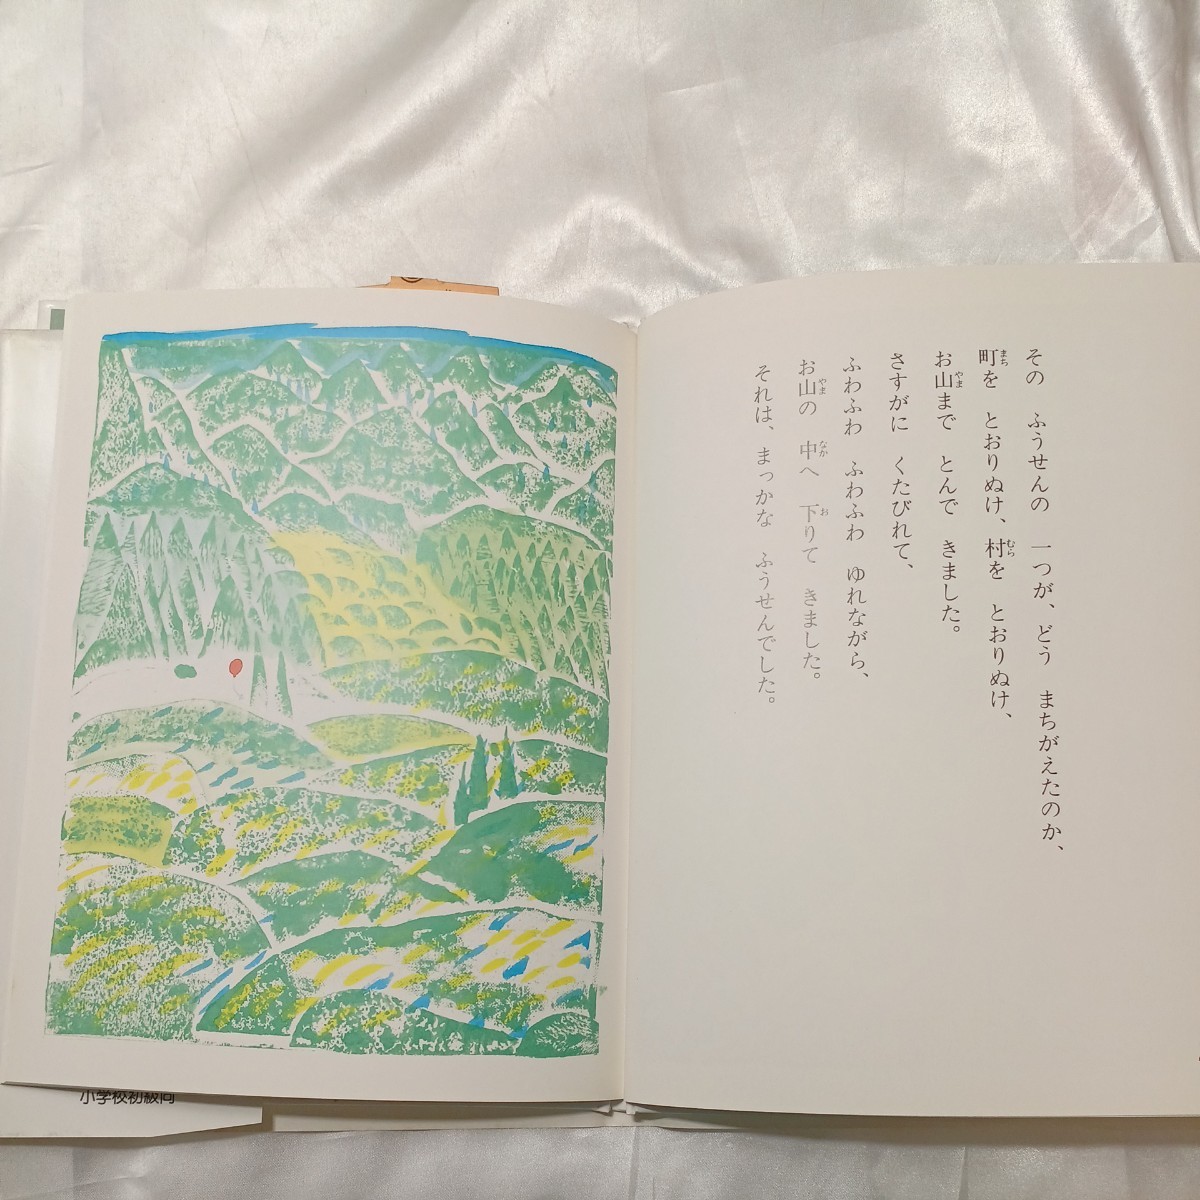 その ふうせんの 一つが、どう まちがえたのか、
町を とおりぬけ、村を とおりぬけ、
お山まで とんで きました。
さすがに くたびれて、
ふわふわ ふわふわ ゆれながら、
お山の 中へ 下りて きました。
それは、まっかな ふうせんでした。
小学校初級向